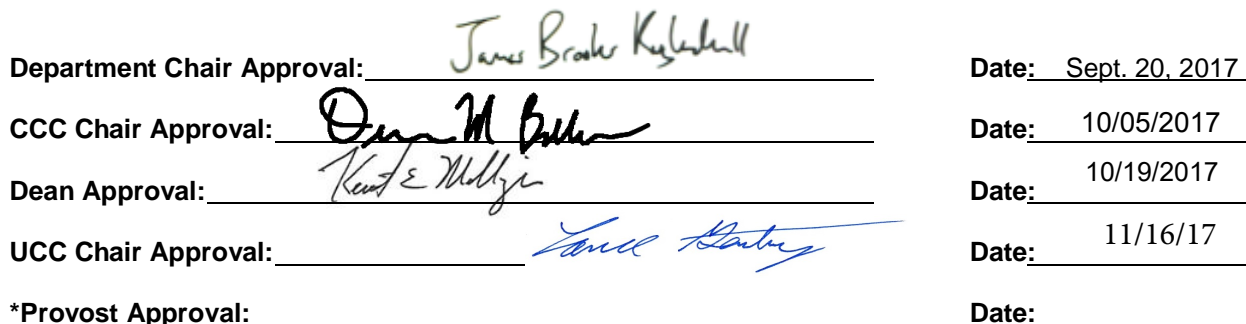 Department Chair Approval: James Date: Sept. 20, 2017
CCC Chair Approval: M Date: 10/05/2017
Dean Approval: Kent E Date: 10/19/2017
UCC Chair Approval: Lance Date: 11/16/17
*Provost Approval: Date: